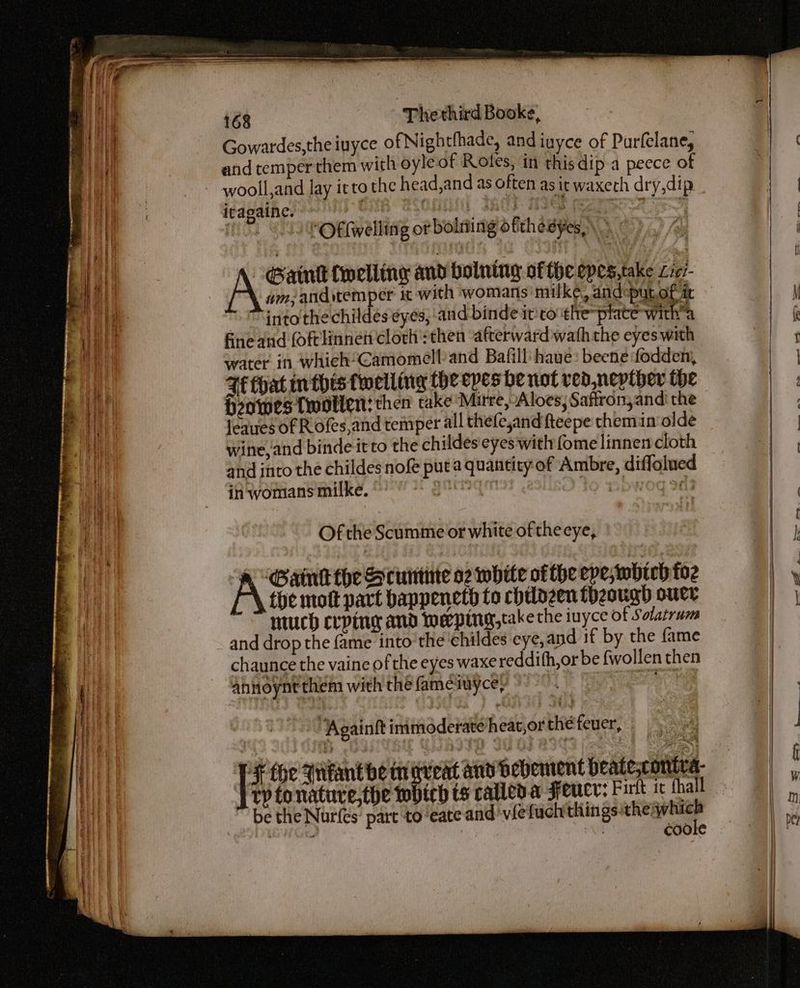 168 The third Booke,
Gowardes,the iuyce of Nightſhade, and iuyce of Purſelane,
and temper them with oyle of Roſes, in this dip a peece of
wooll,and lay it to the head,and as often as it waxeth dry,dip
it againe.
Of ſwelling or bolning of the eyes,
Againſt ſwelling and bolning of the eyes,take Lici-
um, and temper it with womans milke, and put of it
into the childes eyes, and binde it to the place with a
fine and ſoft linnen cloth : then afterward waſh the eyes with
water in which Camomell and Baſill haue beene ſodden,
If that in this ſwelling the eyes be not red,neyther the
browes ſwollen: then take Mirre, Aloes, Saffron, and the
leaues of Roſes,and temper all theſe,and ſteepe them in olde
wine, and binde it to the childes eyes with ſome linnen cloth
and into the childes noſe put a quantity of Ambre, diſſolued
in womans milke.
Of the Scumme or white of the eye,
Againſt the Scumme or white of the eye,which for
the moſt part happeneth to children through ouer
much crying and weeping,take the iuyce of Solatrum
and drop the ſame into the childes eye, and if by the ſame
chaunce the vaine of the eyes waxe reddiſh,or be ſwollen then
annoynt them with the ſame iuyce,
Againſt immoderate heat,or the feuer,
If the Infant be in great and vehement heate,contra-
ry to nature,the which is called a Feuer: Firſt it ſhall
be the Nurſes part to eate and vſe ſuch things the which
coole